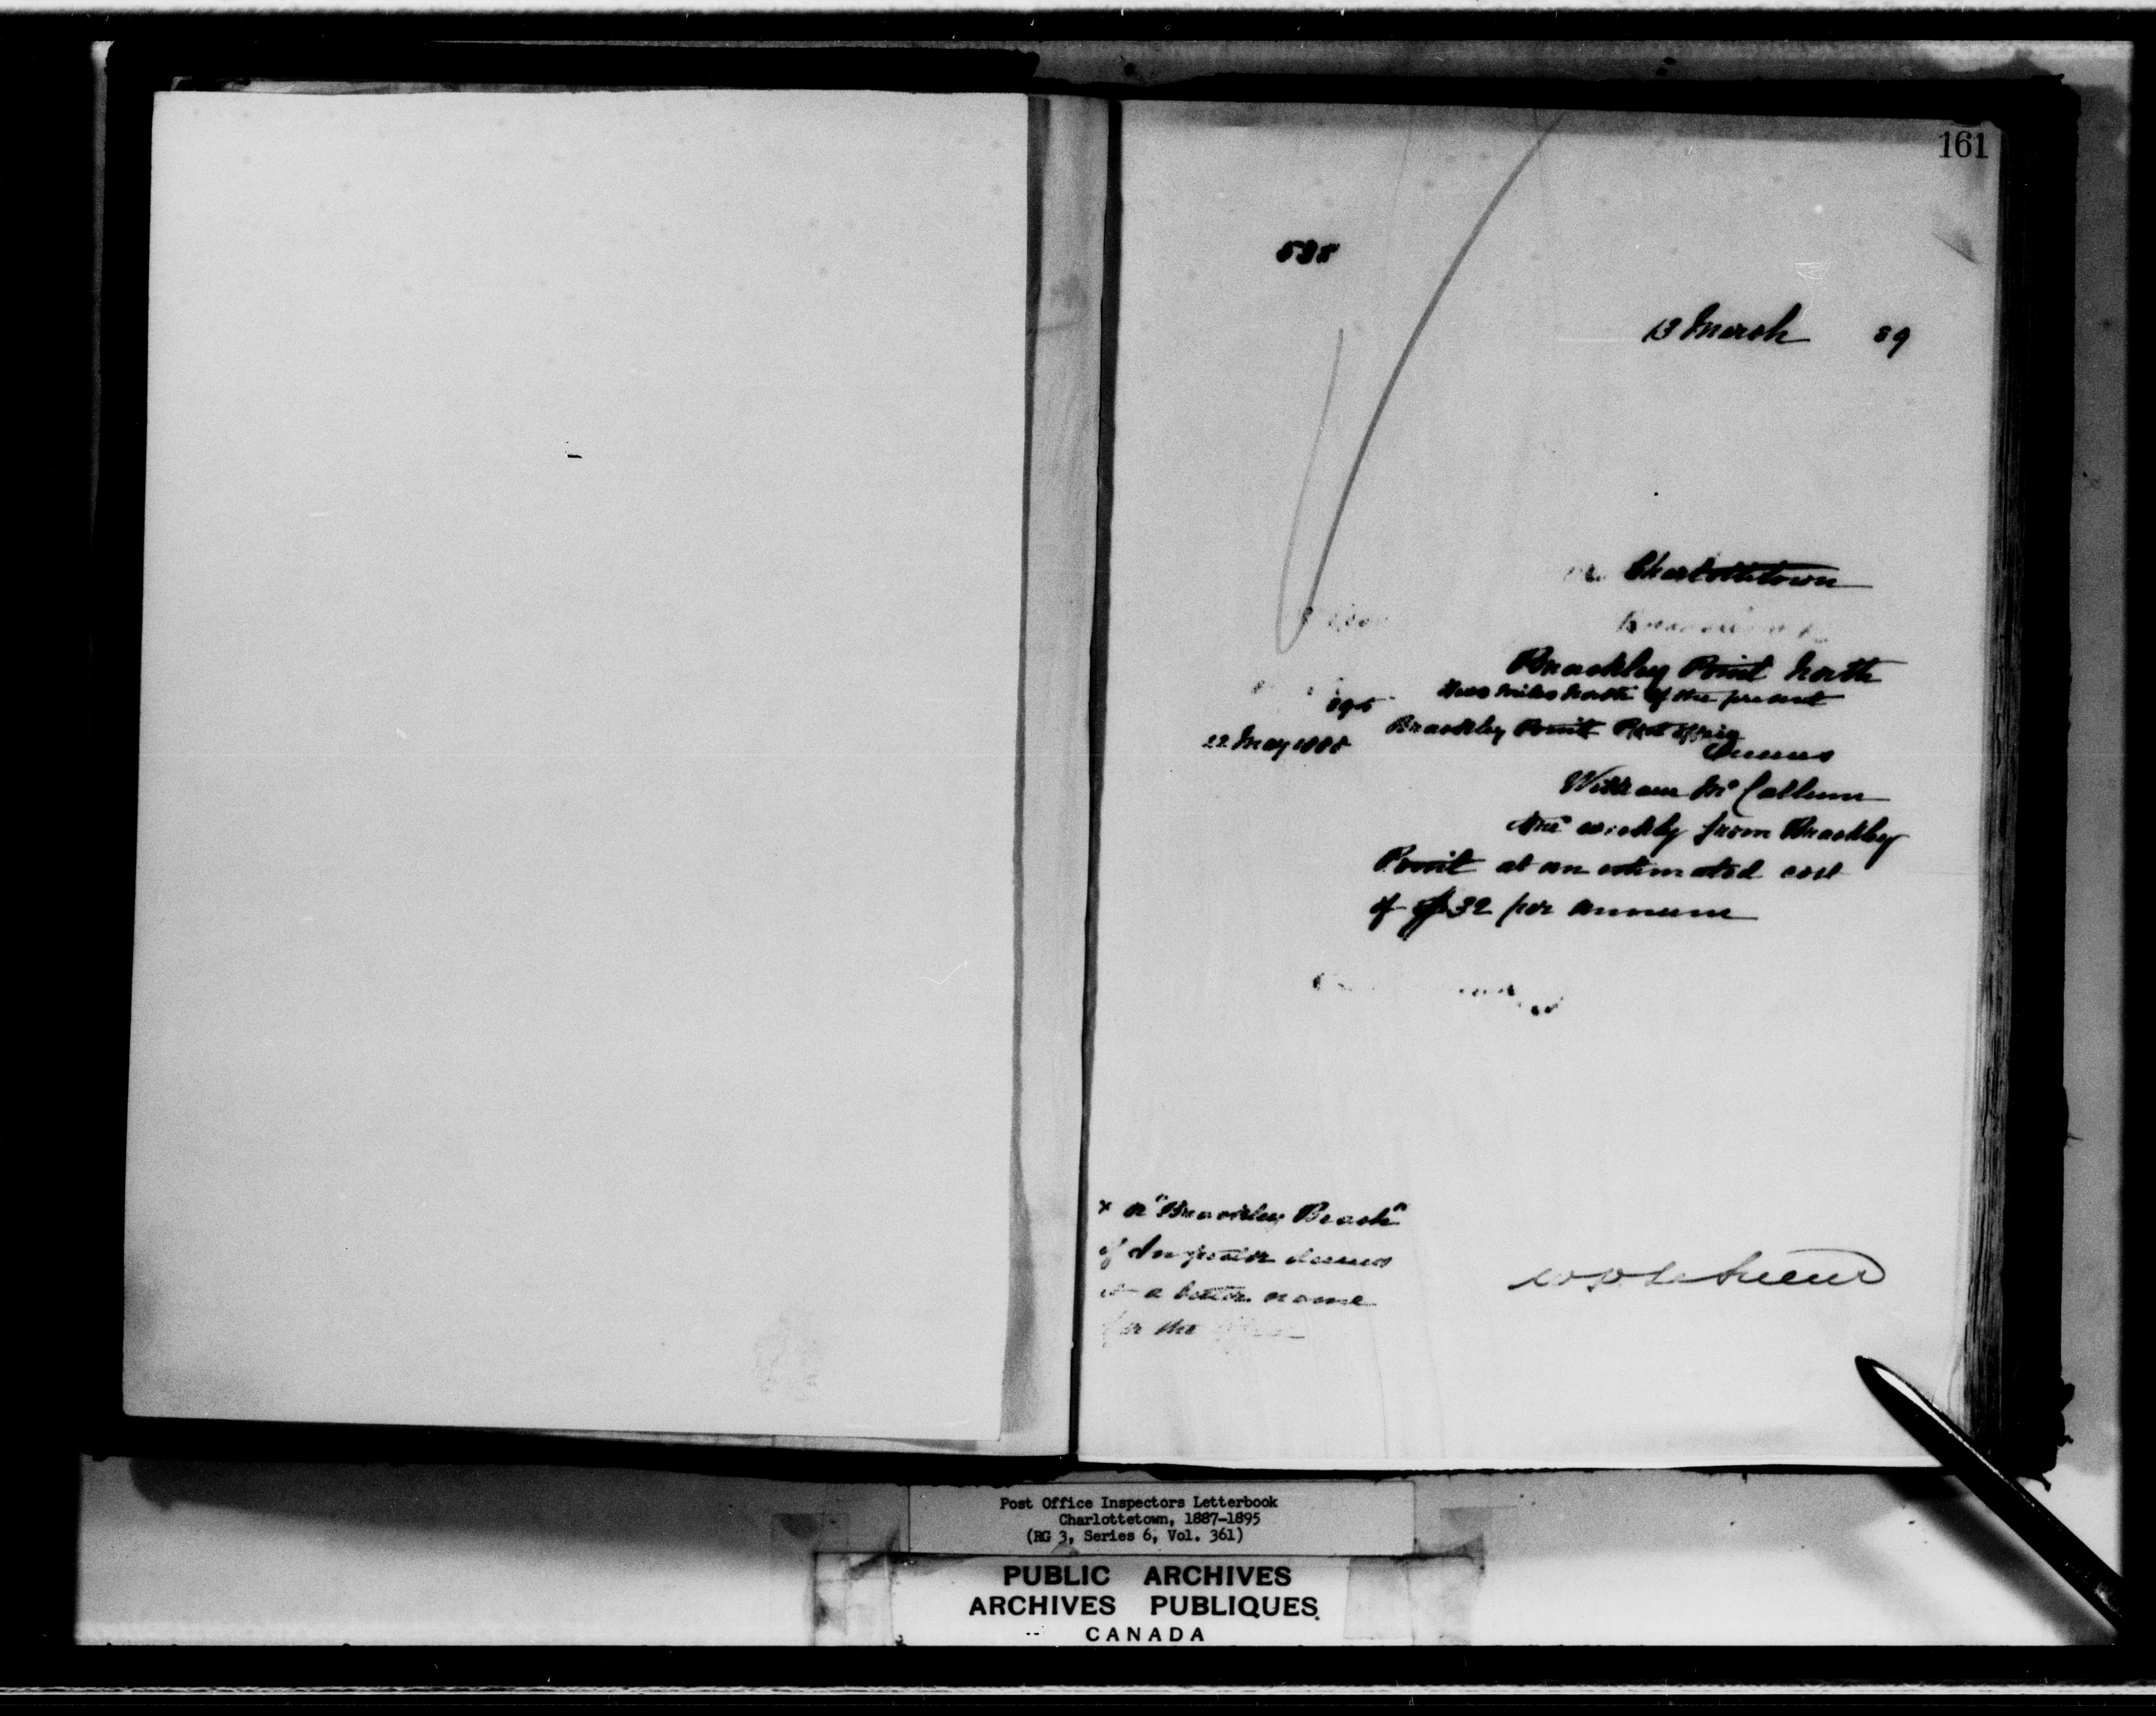 161
538
13 March 89
Charlottetown
Brackley Point North
two miles north of the present
Brackley Point Post Office
22 May 1888
Queens
William McCallum
weekly from Brackley
Point at an estimated cost
of $32 per annum
x or "Brackley Beach"
if Inspector deems
it a better name
for the
Post Office Inspectors Letterbook
Charlottetown, 1887-1895
(RG 3, Series 6, Vol. 361)
PUBLIC ARCHIVES
ARCHIVES PUBLIQUES
CANADA